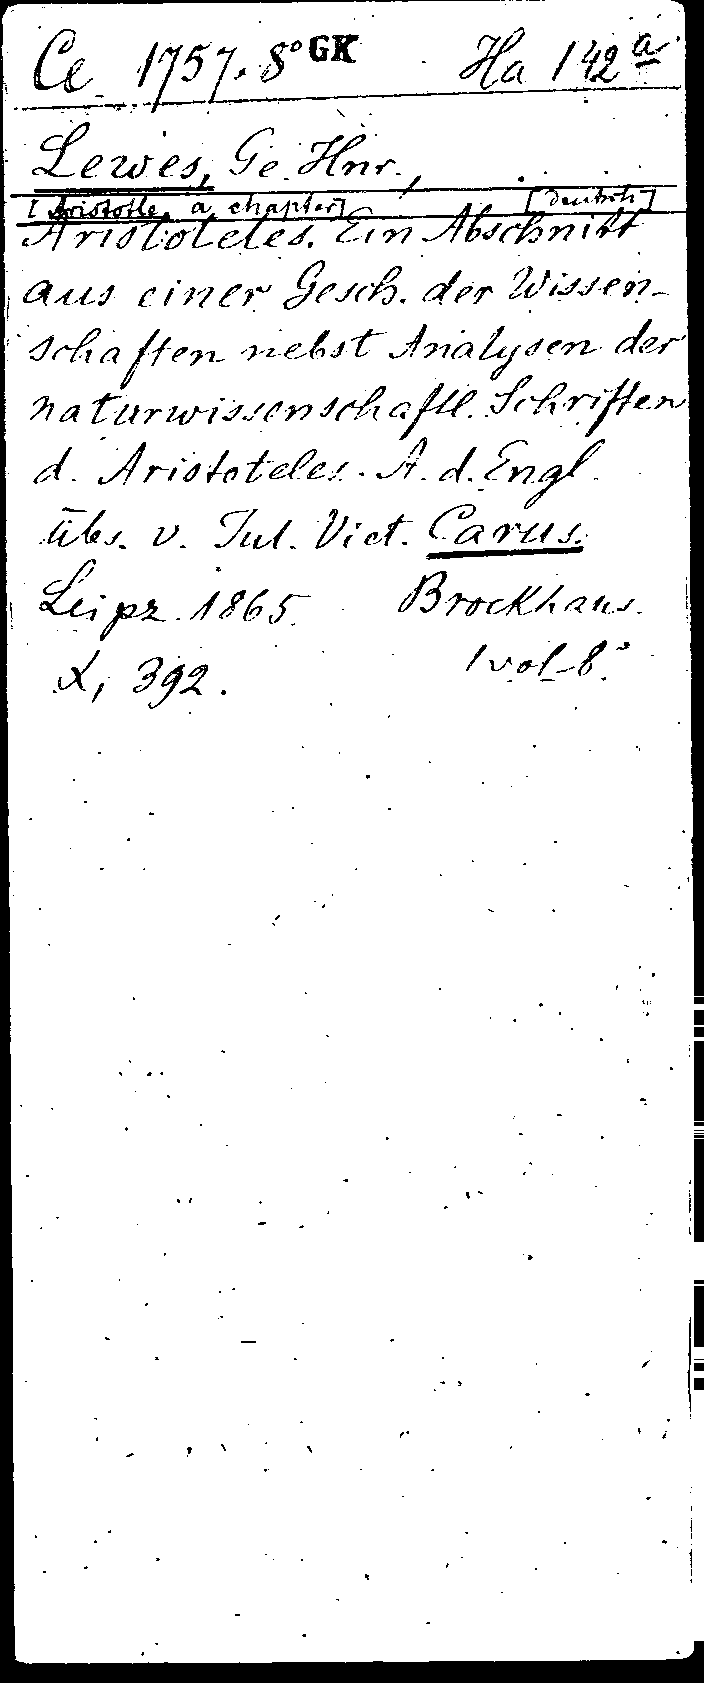 Ce 1757. 8° GK Ha 142 a
Lewes, Ge. Hnr.,
[Aristotle, a chapter] [deutsch]
Aristoteles. Ein Abschnitt
aus einer Gesch. der Wissen-
schaften nebst Analysen der
naturwissenschaftl. Schriften
d. Aristoteles. A. d. Engl.
übs. v. Jul. Vict. Carus.
Leipz. 1865. Brockhaus.
X, 392. 1 vol. 8°